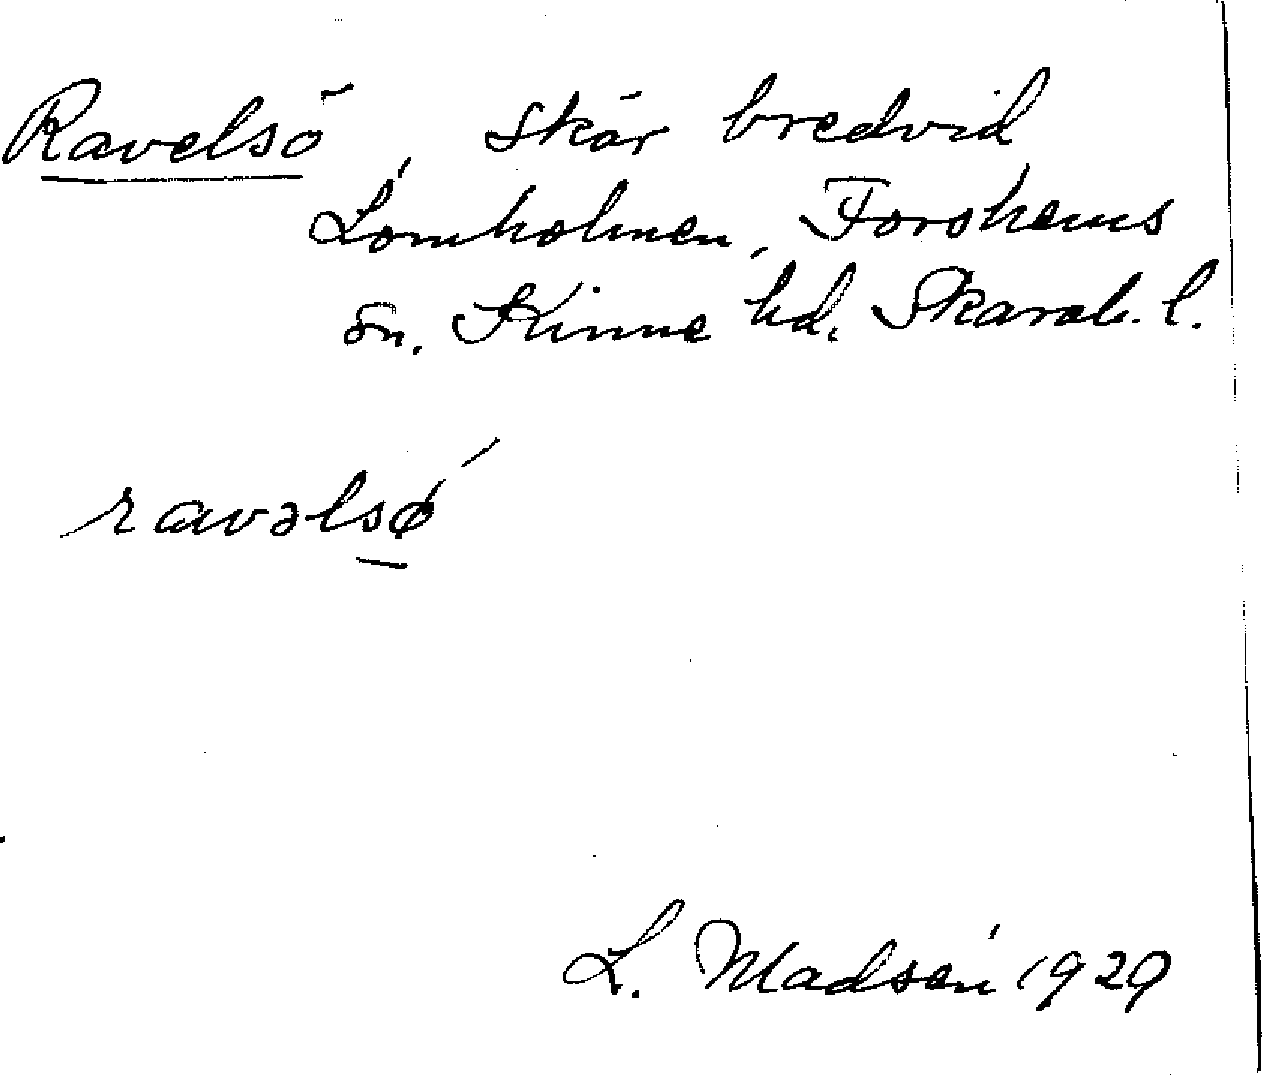 Ravelsö, skär bredvid
Lomholmen, Forshems
sn. Kinne hd. Skarab. l.
ravəlsø
L. Madsén 1929